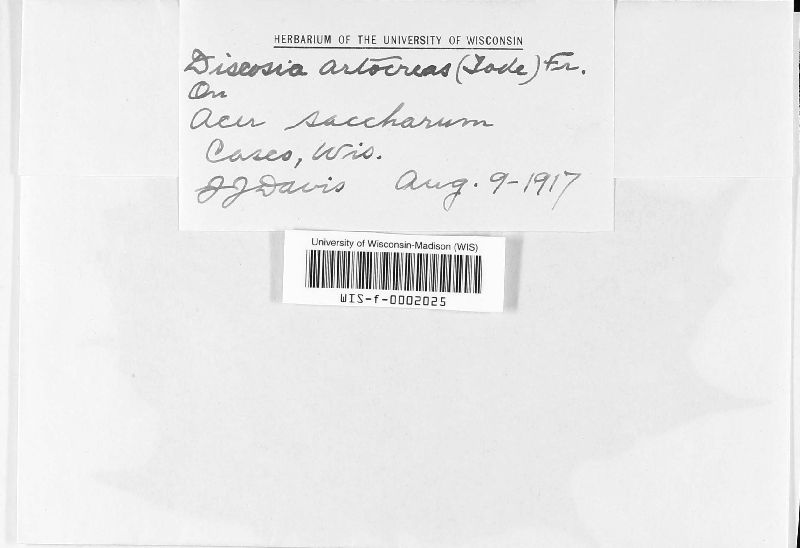 HERBARIUM OF THE UNIVERSITY OF WISCONSIN
Discosia artocreas (Tode) Fr.
On
Acer saccharum
Casco, Wis.
JJ Davis Aug. 9-1917
University of Wisconsin-Madison (WIS)
WIS-f-0002025